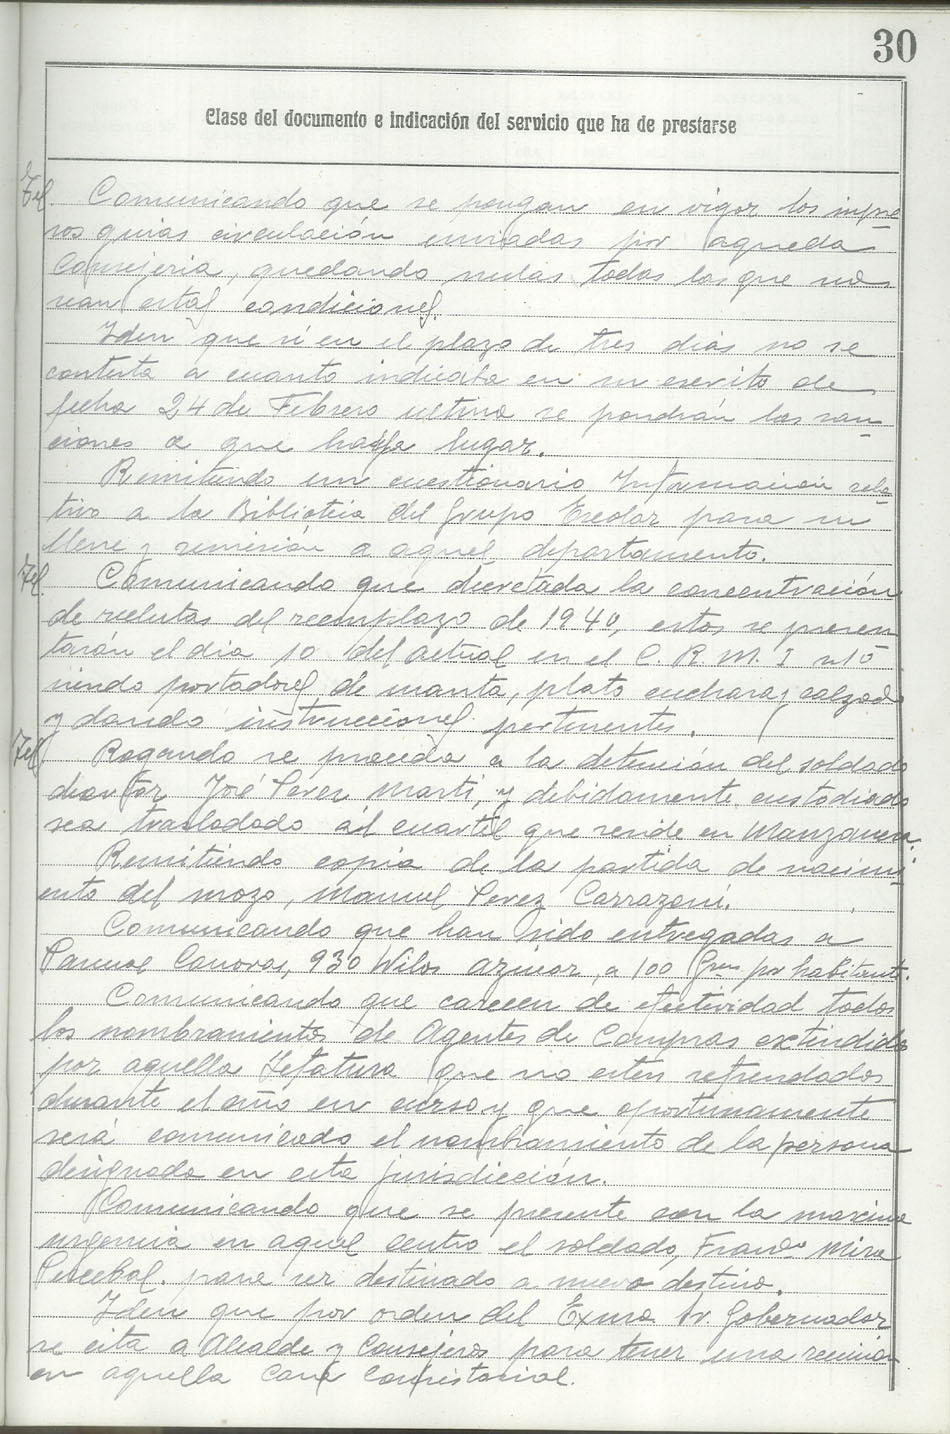 30
Clase del documento e indicación del servicio que ha de prestarse
Tel. Comunicando que se pongan en vigor los impre
sos guias circulación enviadas por aqueda
Consejeria, quedando nulas todas las que no
sean estas condiciones.
Iden que si en el plazo de tres dias no se
contesta a cuanto indicaba en su escrito de
fecha 24 de Febrero ultimo se pondrán las san
ciones a que haya lugar.
Remitiendo un cuestionario Informacion rela
tivo a la Biblioteca del Grupo Escolar para su
llene y remisión a aquel departamento.
Tel. Comunicando que decretada la concentración
de reclutas del reemplazo de 1940, estos se presen
tarán el dia 10 del actual en el C. R. M. I nº
siendo portadores de manta, plato cuchara y calzado
y dando instrucciones pertinentes.
Tel. Rogando se proceda a la detención del soldado
desertor José Perez Marti, y debidamente custodiado
sea trasladado al cuartel que reside en Manzanera.
Remitiendo copia de la partida de nacimi
ento del mozo, Manuel Perez Carrazoni.
Comunicando que han sido entregadas a
Canovas, 930 Kilos azúcar, a 100 Grms por habitante.
Comunicando que carecen de efectividad todos
los nombramientos de Agentes de Compras extendidos
por aquella Jefatura que no esten refrendados
durante el año en curso y que oportunamente
será comunicado el nombramiento de la persona
designada en esta jurisdicción.
Comunicando que se presente con la maxima
urgencia en aquel centro el soldado, Franco Mira
para ser destinado a nuevo destino.
Iden que por orden del Exmo. Sr. Gobernador
se cita a Alcalde y Consejeros para tener una reunion
en aquella Casa Consistorial.